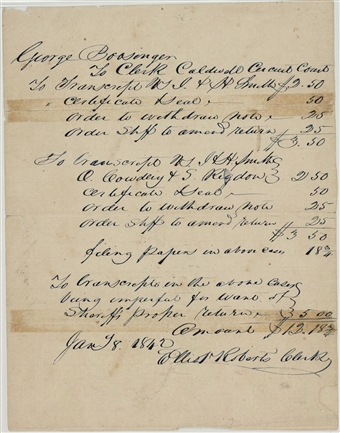 George Bosinger
To Clerk Caldwell Circuit Court
To Transcript vs J & H Smith $2.50
" Certificate & Seal 50
order to withdraw note 25
order Shff to amend return 25
$3.50
To transcript vs J & H Smith
O. Cowdery & S Rigdon 2 50
Certificate & Seal 50
order to withdraw note 25
order Shff to amend return 25
$3 50
filing papers in above cases 18¾
To transcripts in the above cases
being imperfect for want of
Sheriffs proper return 5 00
Amount $12.18¾
Jany 8. 1842
Roberts Clerk